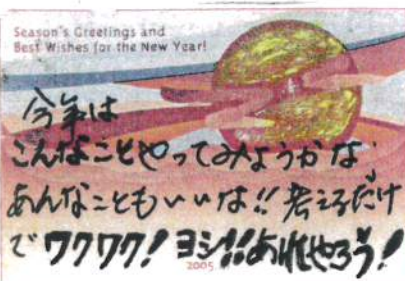 Season's Greetings and
Best Wishes for the New Year!
今年は
こんなことやってみようかな
あんなこともいいな!! 考えるだけ
で ワクワク! ヨシ!! あれやろう!
2005